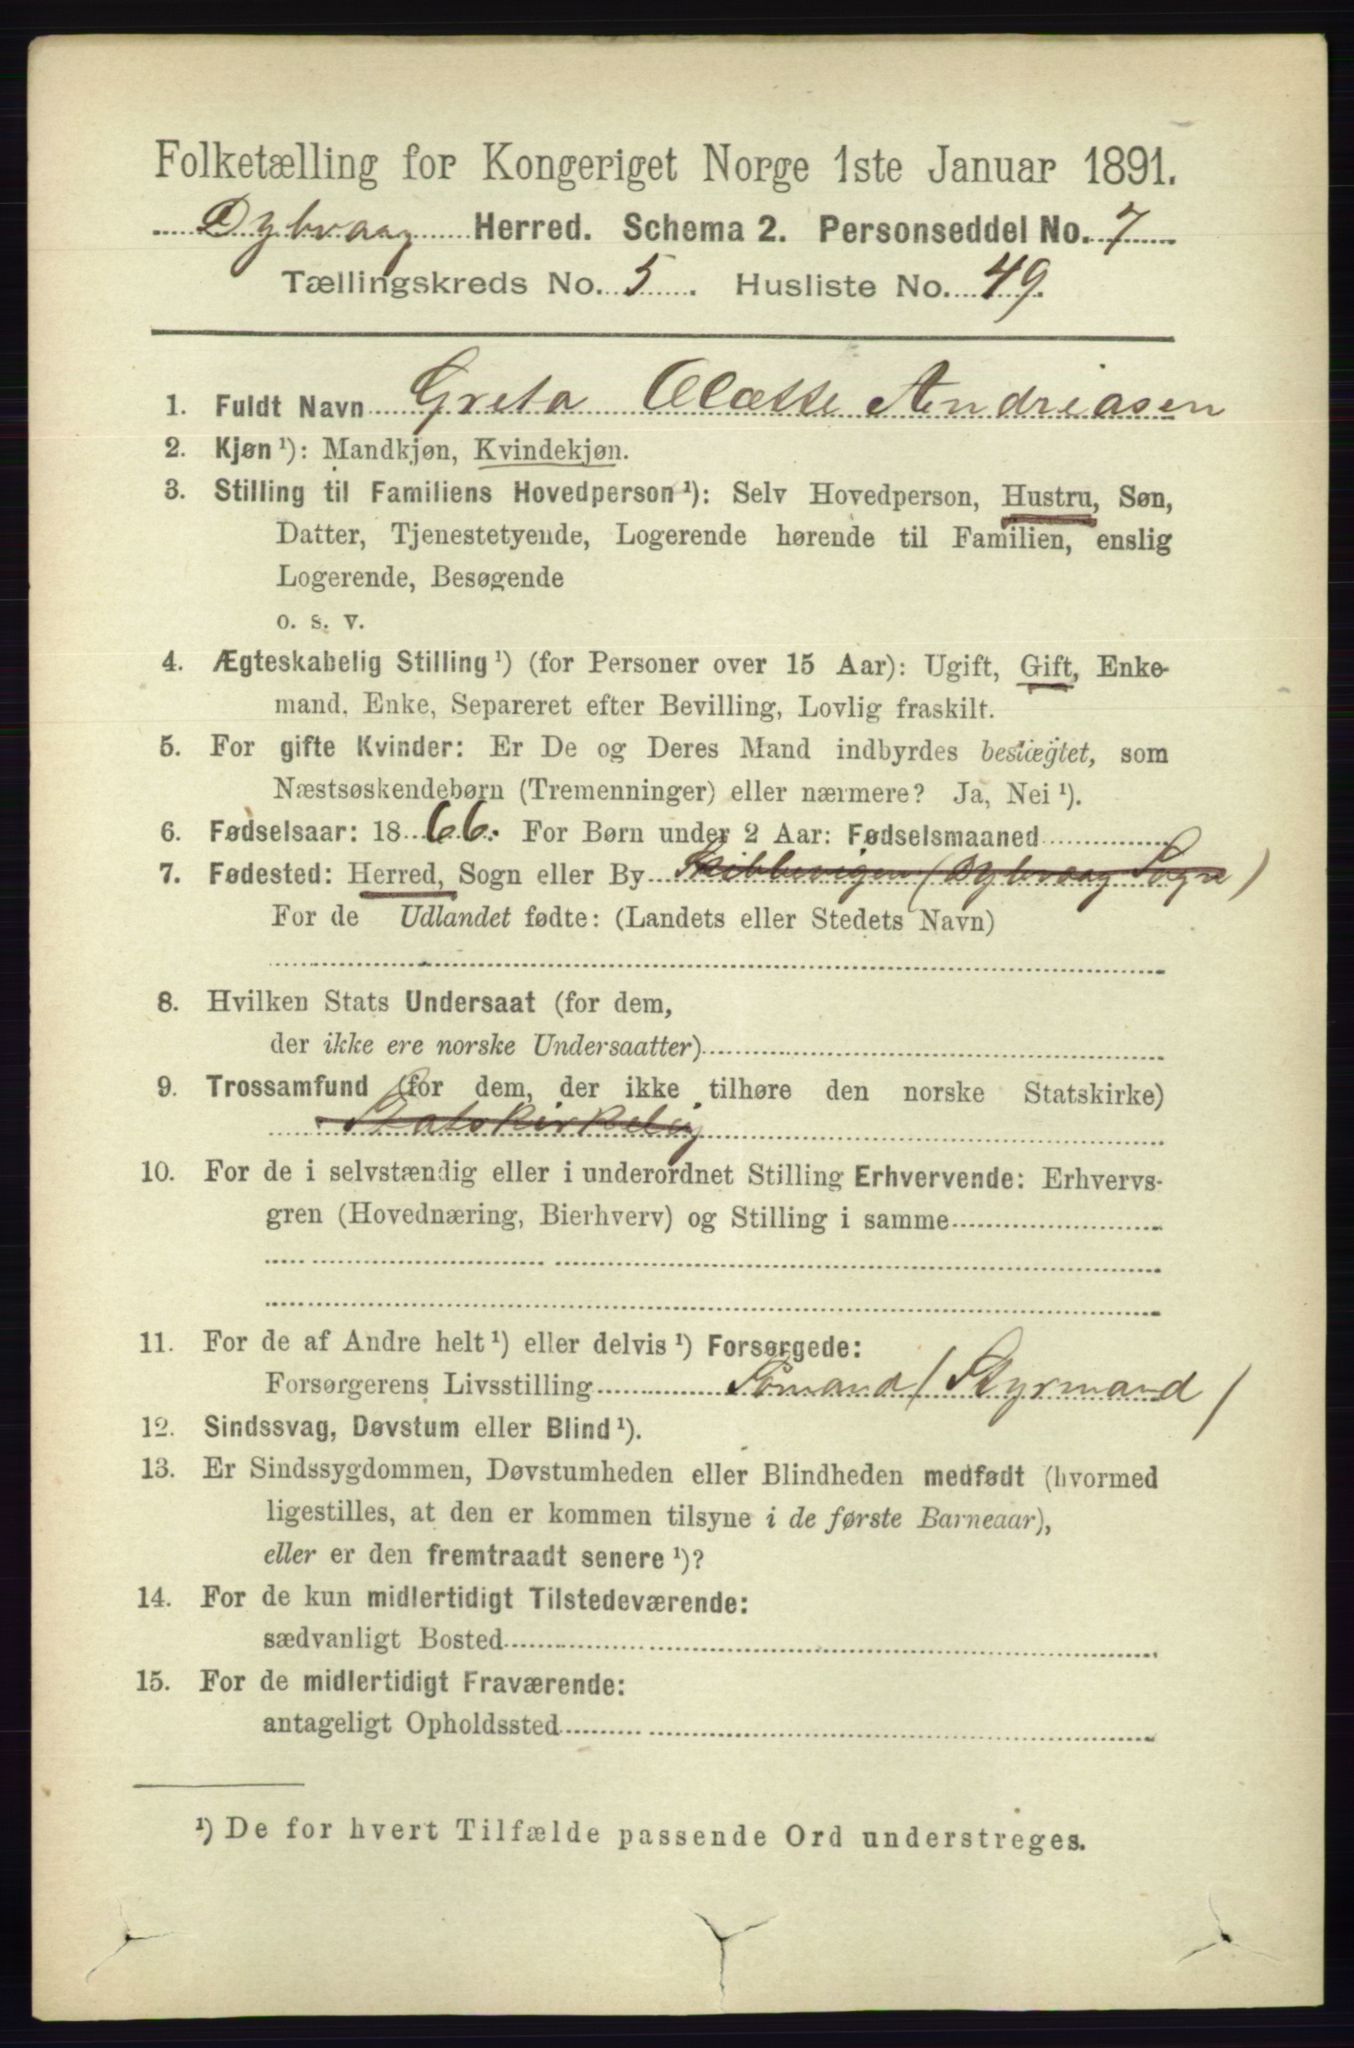 Folketælling for Kongeriget Norge 1ste Januar 1891.
Dybvaag Herred. Schema 2. Personseddel No. 7
Tællingskreds No. 5. Husliste No. 49.
1. Fuldt Navn Greta Andreasen
2. Kjøn ¹): Mandkjøn, Kvindekjøn.
3. Stilling til Familiens Hovedperson ¹): Selv Hovedperson, Hustru, Søn,
Datter, Tjenestetyende, Logerende hørende til Familien, enslig
Logerende, Besøgende
o. s. v.
4. Ægteskabelig Stilling ¹) (for Personer over 15 Aar): Ugift, Gift, Enke-
mand, Enke, Separeret efter Bevilling, Lovlig fraskilt.
5. For gifte Kvinder: Er De og Deres Mand indbyrdes beslægtet, som
Næstsøskendebørn (Tremenninger) eller nærmere? Ja, Nei ¹).
6. Fødselsaar: 1866. For Børn under 2 Aar: Fødselsmaaned
7. Fødested: Herred, Sogn eller By Skibbevigen (Dybvaag Sogn)
For de Udlandet fødte: (Landets eller Stedets Navn)
8. Hvilken Stats Undersaat (for dem,
der ikke ere norske Undersaatter)
9. Trossamfund (for dem, der ikke tilhøre den norske Statskirke)
Statskirkelig
10. For de i selvstændig eller i underordnet Stilling Erhvervende: Erhvervs-
gren (Hovednæring, Bierhverv) og Stilling i samme
11. For de af Andre helt ¹) eller delvis ¹) Forsørgede:
Forsørgerens Livsstilling Sømand (Styrmand)
12. Sindssvag, Døvstum eller Blind ¹).
13. Er Sindssygdommen, Døvstumheden eller Blindheden medfødt (hvormed
ligestilles, at den er kommen tilsyne i de første Barneaar),
eller er den fremtraadt senere ¹)?
14. For de kun midlertidigt Tilstedeværende:
sædvanligt Bosted
15. For de midlertidigt Fraværende:
antageligt Opholdssted
¹) De for hvert Tilfælde passende Ord understreges.